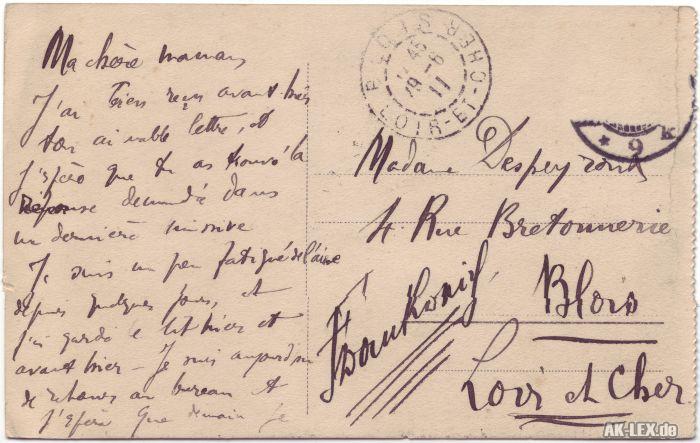 Ma chère maman
J'ai bien reçu avant hier
ton aimable lettre, et
j'espère que tu as trouvé la
réponse demandée dans
ma dernière missive
Je suis un peu fatigué de l'aine
depuis quelques jours, et
j'ai gardé le lit hier et
avant hier - Je suis aujourd'hui
de retour au bureau et
j'espère que demain je
BLOIS
19 -6
11
LOIR-ET-CHER
* 9 K
Madame Despeyroux
4 Rue Bretonnerie
Blois
Loir et Cher
AK-LEX.de